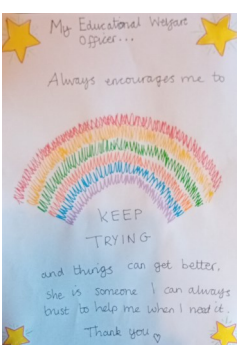 My Educational Welfare
Officer...
Always encourages me to
KEEP
TRYING
and things can get better.
She is someone I can always
trust to help me when I need it.
Thank you